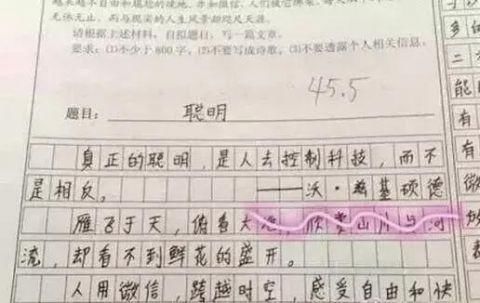 越来越不自由和尴尬的境地。亦如微信，人们被它绑架，每天
无休无止，而与现实的人生风景却咫尺天涯。
请根据上述材料，自拟题目，写一篇文章。
要求：(1)不少于800字，(2)不要写成诗歌，(3)不要透露个人相关信息。
45.5
题目：聪明
真正的聪明，是人去控制科技，而不
是相反。——沃·兹基硕德
雁飞于天，俯看大地，欣赏山川与河
流，却看不到鲜花的盛开。
人用微信，跨越时空，感受自由和快
多的
二
能
有
有
微